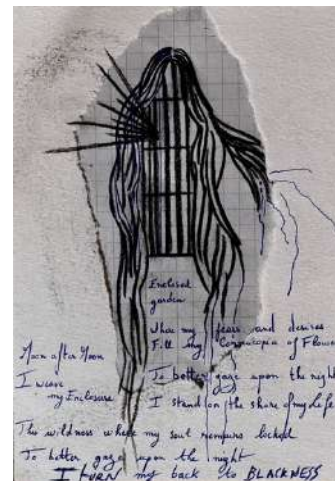 Enclosed
garden
Where my fears and desires
Fill my Cornucopia of Flowers
Moon after Moon
To better gaze upon the night
I weave
my Enclosure
I stand on the shore of my life
This wildness where my soul remains locked
To better gaze upon the night
I TURN my back to BLACKNESS